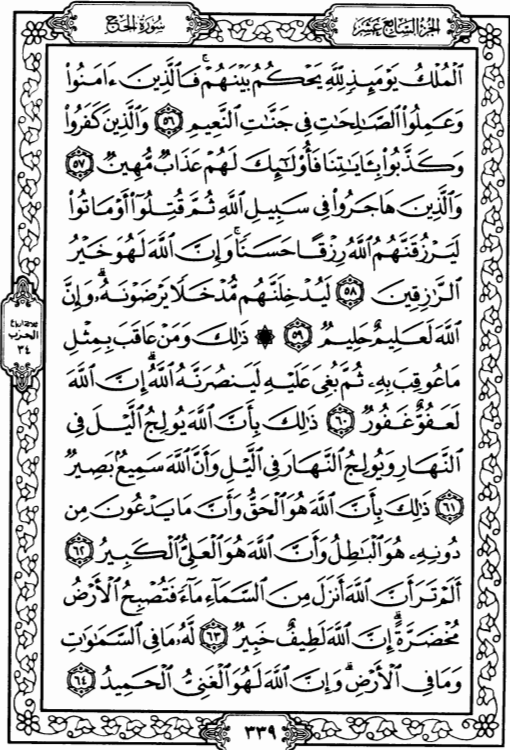 الجزء السابع عشر
سورة الحج
ٱلْمُلْكُ يَوْمَئِذٍ لِّلَّهِ يَحْكُمُ بَيْنَهُمْ ۚ فَٱلَّذِينَ ءَامَنُوا۟
وَعَمِلُوا۟ ٱلصَّـٰلِحَـٰتِ فِى جَنَّـٰتِ ٱلنَّعِيمِ ٥٦ وَٱلَّذِينَ كَفَرُوا۟
وَكَذَّبُوا۟ بِـَٔايَـٰتِنَا فَأُو۟لَـٰٓئِكَ لَهُمْ عَذَابٌ مُّهِينٌ ٥٧
وَٱلَّذِينَ هَاجَرُوا۟ فِى سَبِيلِ ٱللَّهِ ثُمَّ قُتِلُوٓا۟ أَوْ مَاتُوا۟
لَيَرْزُقَنَّهُمُ ٱللَّهُ رِزْقًا حَسَنًا ۚ وَإِنَّ ٱللَّهَ لَهُوَ خَيْرُ
ٱلرَّٰزِقِينَ ٥٨ لَيُدْخِلَنَّهُم مُّدْخَلًا يَرْضَوْنَهُۥ ۗ وَإِنَّ
ٱللَّهَ لَعَلِيمٌ حَلِيمٌ ٥٩ ۞ ذَٰلِكَ وَمَنْ عَاقَبَ بِمِثْلِ
مَا عُوقِبَ بِهِۦ ثُمَّ بُغِىَ عَلَيْهِ لَيَنصُرَنَّهُ ٱللَّهُ ۗ إِنَّ ٱللَّهَ
لَعَفُوٌّ غَفُورٌ ٦٠ ذَٰلِكَ بِأَنَّ ٱللَّهَ يُولِجُ ٱلَّيْلَ فِى
ٱلنَّهَارِ وَيُولِجُ ٱلنَّهَارَ فِى ٱلَّيْلِ وَأَنَّ ٱللَّهَ سَمِيعٌۢ بَصِيرٌ
٦١ ذَٰلِكَ بِأَنَّ ٱللَّهَ هُوَ ٱلْحَقُّ وَأَنَّ مَا يَدْعُونَ مِن
دُونِهِۦ هُوَ ٱلْبَـٰطِلُ وَأَنَّ ٱللَّهَ هُوَ ٱلْعَلِىُّ ٱلْكَبِيرُ ٦٢
أَلَمْ تَرَ أَنَّ ٱللَّهَ أَنزَلَ مِنَ ٱلسَّمَآءِ مَآءً فَتُصْبِحُ ٱلْأَرْضُ
مُخْضَرَّةً ۗ إِنَّ ٱللَّهَ لَطِيفٌ خَبِيرٌ ٦٣ لَّهُۥ مَا فِى ٱلسَّمَـٰوَٰتِ
وَمَا فِى ٱلْأَرْضِ ۗ وَإِنَّ ٱللَّهَ لَهُوَ ٱلْغَنِىُّ ٱلْحَمِيدُ ٦٤
الحزب
٣٤
٣٣٩